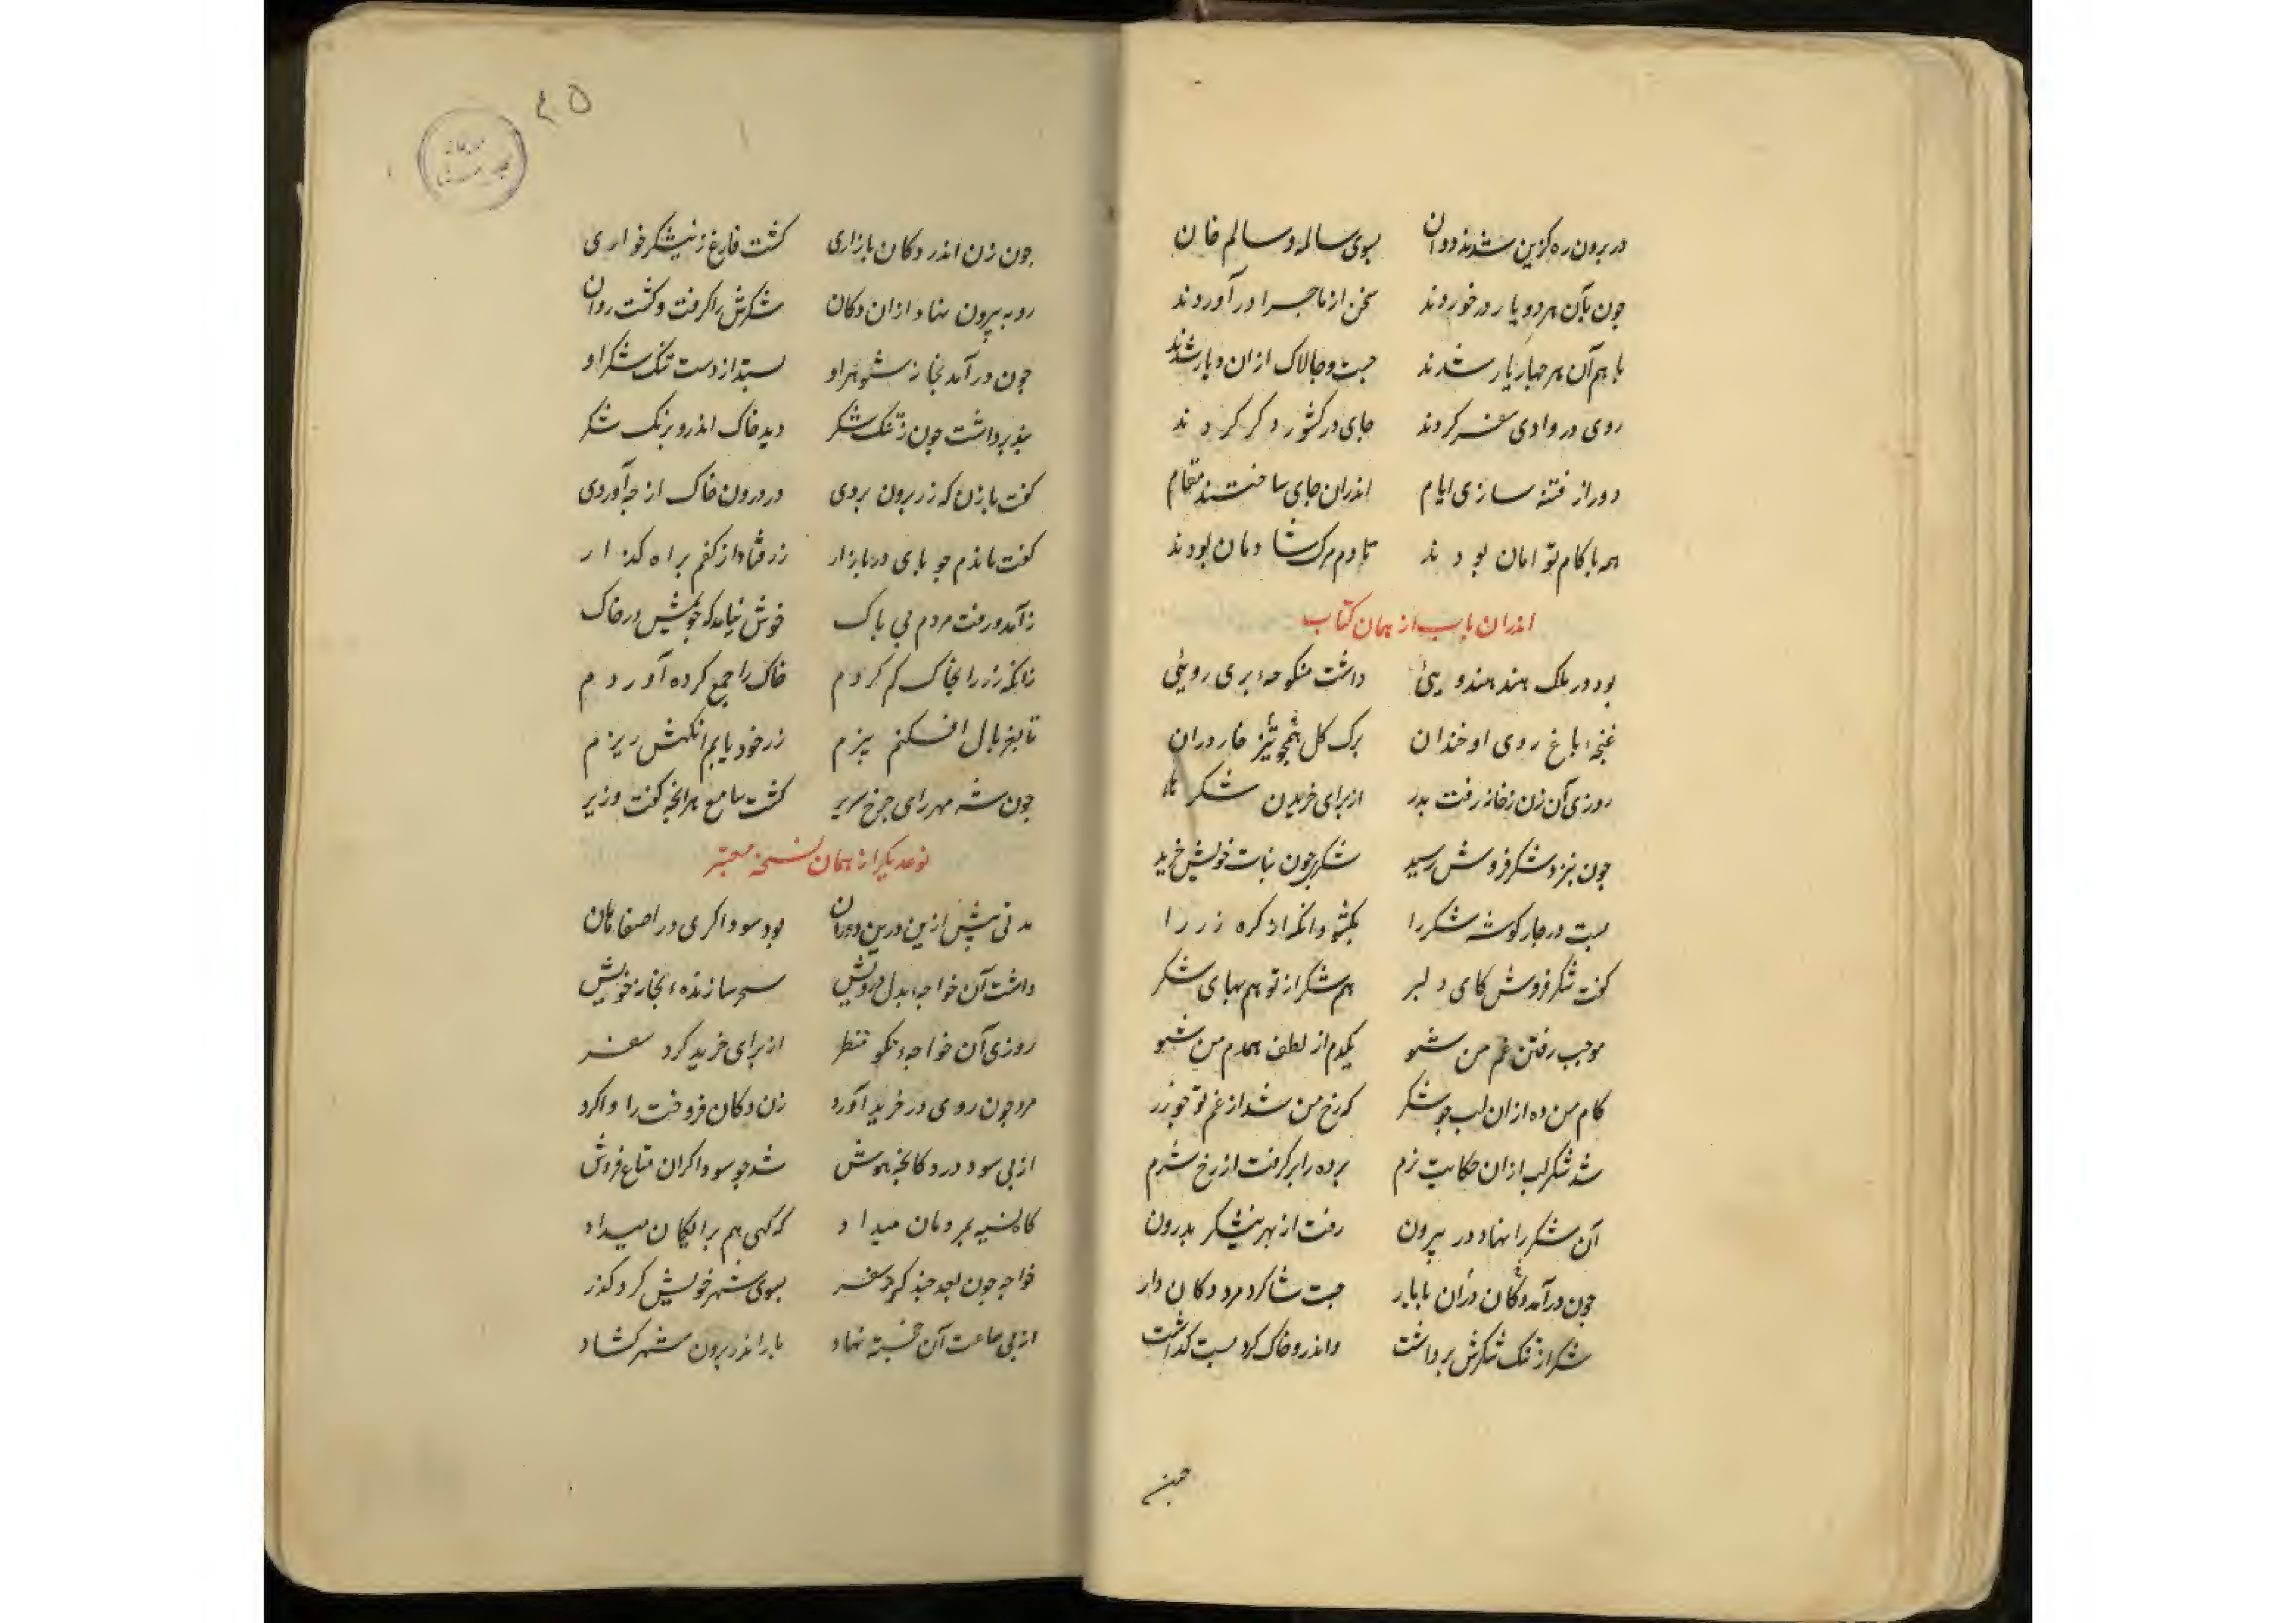 در برون ره گزین شدند دوان بسوی سالمه و سالم خان
چون بآن هر دو یار در خوردند سخن از ماجرا در آوردند
با هم آن هر چهار یار شدند جست و چالاک ازان دیار شدند
روی در وادی سفر کردند جای در کشور دگر کردند
دور از فتنه سازی ایام اندران جای ساختند مقام
همه با کام توامان بودند تا دم مرگ شادمان بودند
اندران باب از همان کتاب
بود در ملک هند هندویی داشت منکوحهٔ پری رویی
غنچهٔ باغ روی او خندان برک کل خار دران
روزی آن زن ز خانه رفت بدر از برای خریدن شکر
چون بنزد شکر فروش رسید شکر چون نبات خویش خرید
بست در چار کوشه شکر را بکشود انکه از کره زر را
کفت شکر فروش کای دلبر هم شکر از تو هم بهای شکر
موجب رفتن غم من شو یکدم از لطف همدم من شو
کام من ده ازان لب چو شکر که رخ من شد از غم تو چو زر
شد شکر لب ازان حکایت نرم پرده را بر کرفت از رخ شرم
آن شکر را نهاد در بیرون رفت از بهر نیشکر بدرون
چون درآمد دکان دران با یار جست شاکرد مرد دکان دار
شکر از تنک شکرش برداشت واندرو خاک کرد بست کذاشت
۴۵
چون زن اندر دکان بازاری کشت فارغ ز نیشکر خواری
رو به بیرون نهاد ازان دکان شکرش را کرفت و کشت روان
چون درآمد بخانه شوهر او بستد از دست تنک شکر او
بند برداشت چون ز تنک شکر دید خاک اندرو برنک شکر
کفت با زن که زر برون بردی در درون خاک از چه آوردی
کفت ماندم چو پای در بازار زر فتاد از کفم براه کذار
ز آمد و رفت مردم بی باک خوش نیامد که جویمش در خاک
زانکه زر را بخاک کم کردم خاک را جمع کرده آوردم
تا بغربال افکنم بیزم زر خود یابم انکهش ریزم
چون شه مهر رای چرخ سریر کشت سامع هر انچه کفت وزیر
نوعدیکر از همان نسخه معتبر
مدتی پیش ازین درین دوران بود سوداکری در اصفاهان
داشت آن خواجهٔ بدل درویش سحر سازندهٔ بخانه خویش
روزی آن خواجهٔ نکو منظر از برای خرید کرد سفر
مرد چون روی در خرید آورد زن دکان فروخت را وا کرد
از پی سود در دکانچهٔ هوش شد چو سوداکران متاع فروش
کاه نسیه بمردمان میداد که کهی هم برایکان میداد
خواجه چون بعد چند کرد سفر بسوی شهر خویش کرد کذر
از پی ساعت آن خجسته نهاد بار اندر برون شهر کشاد